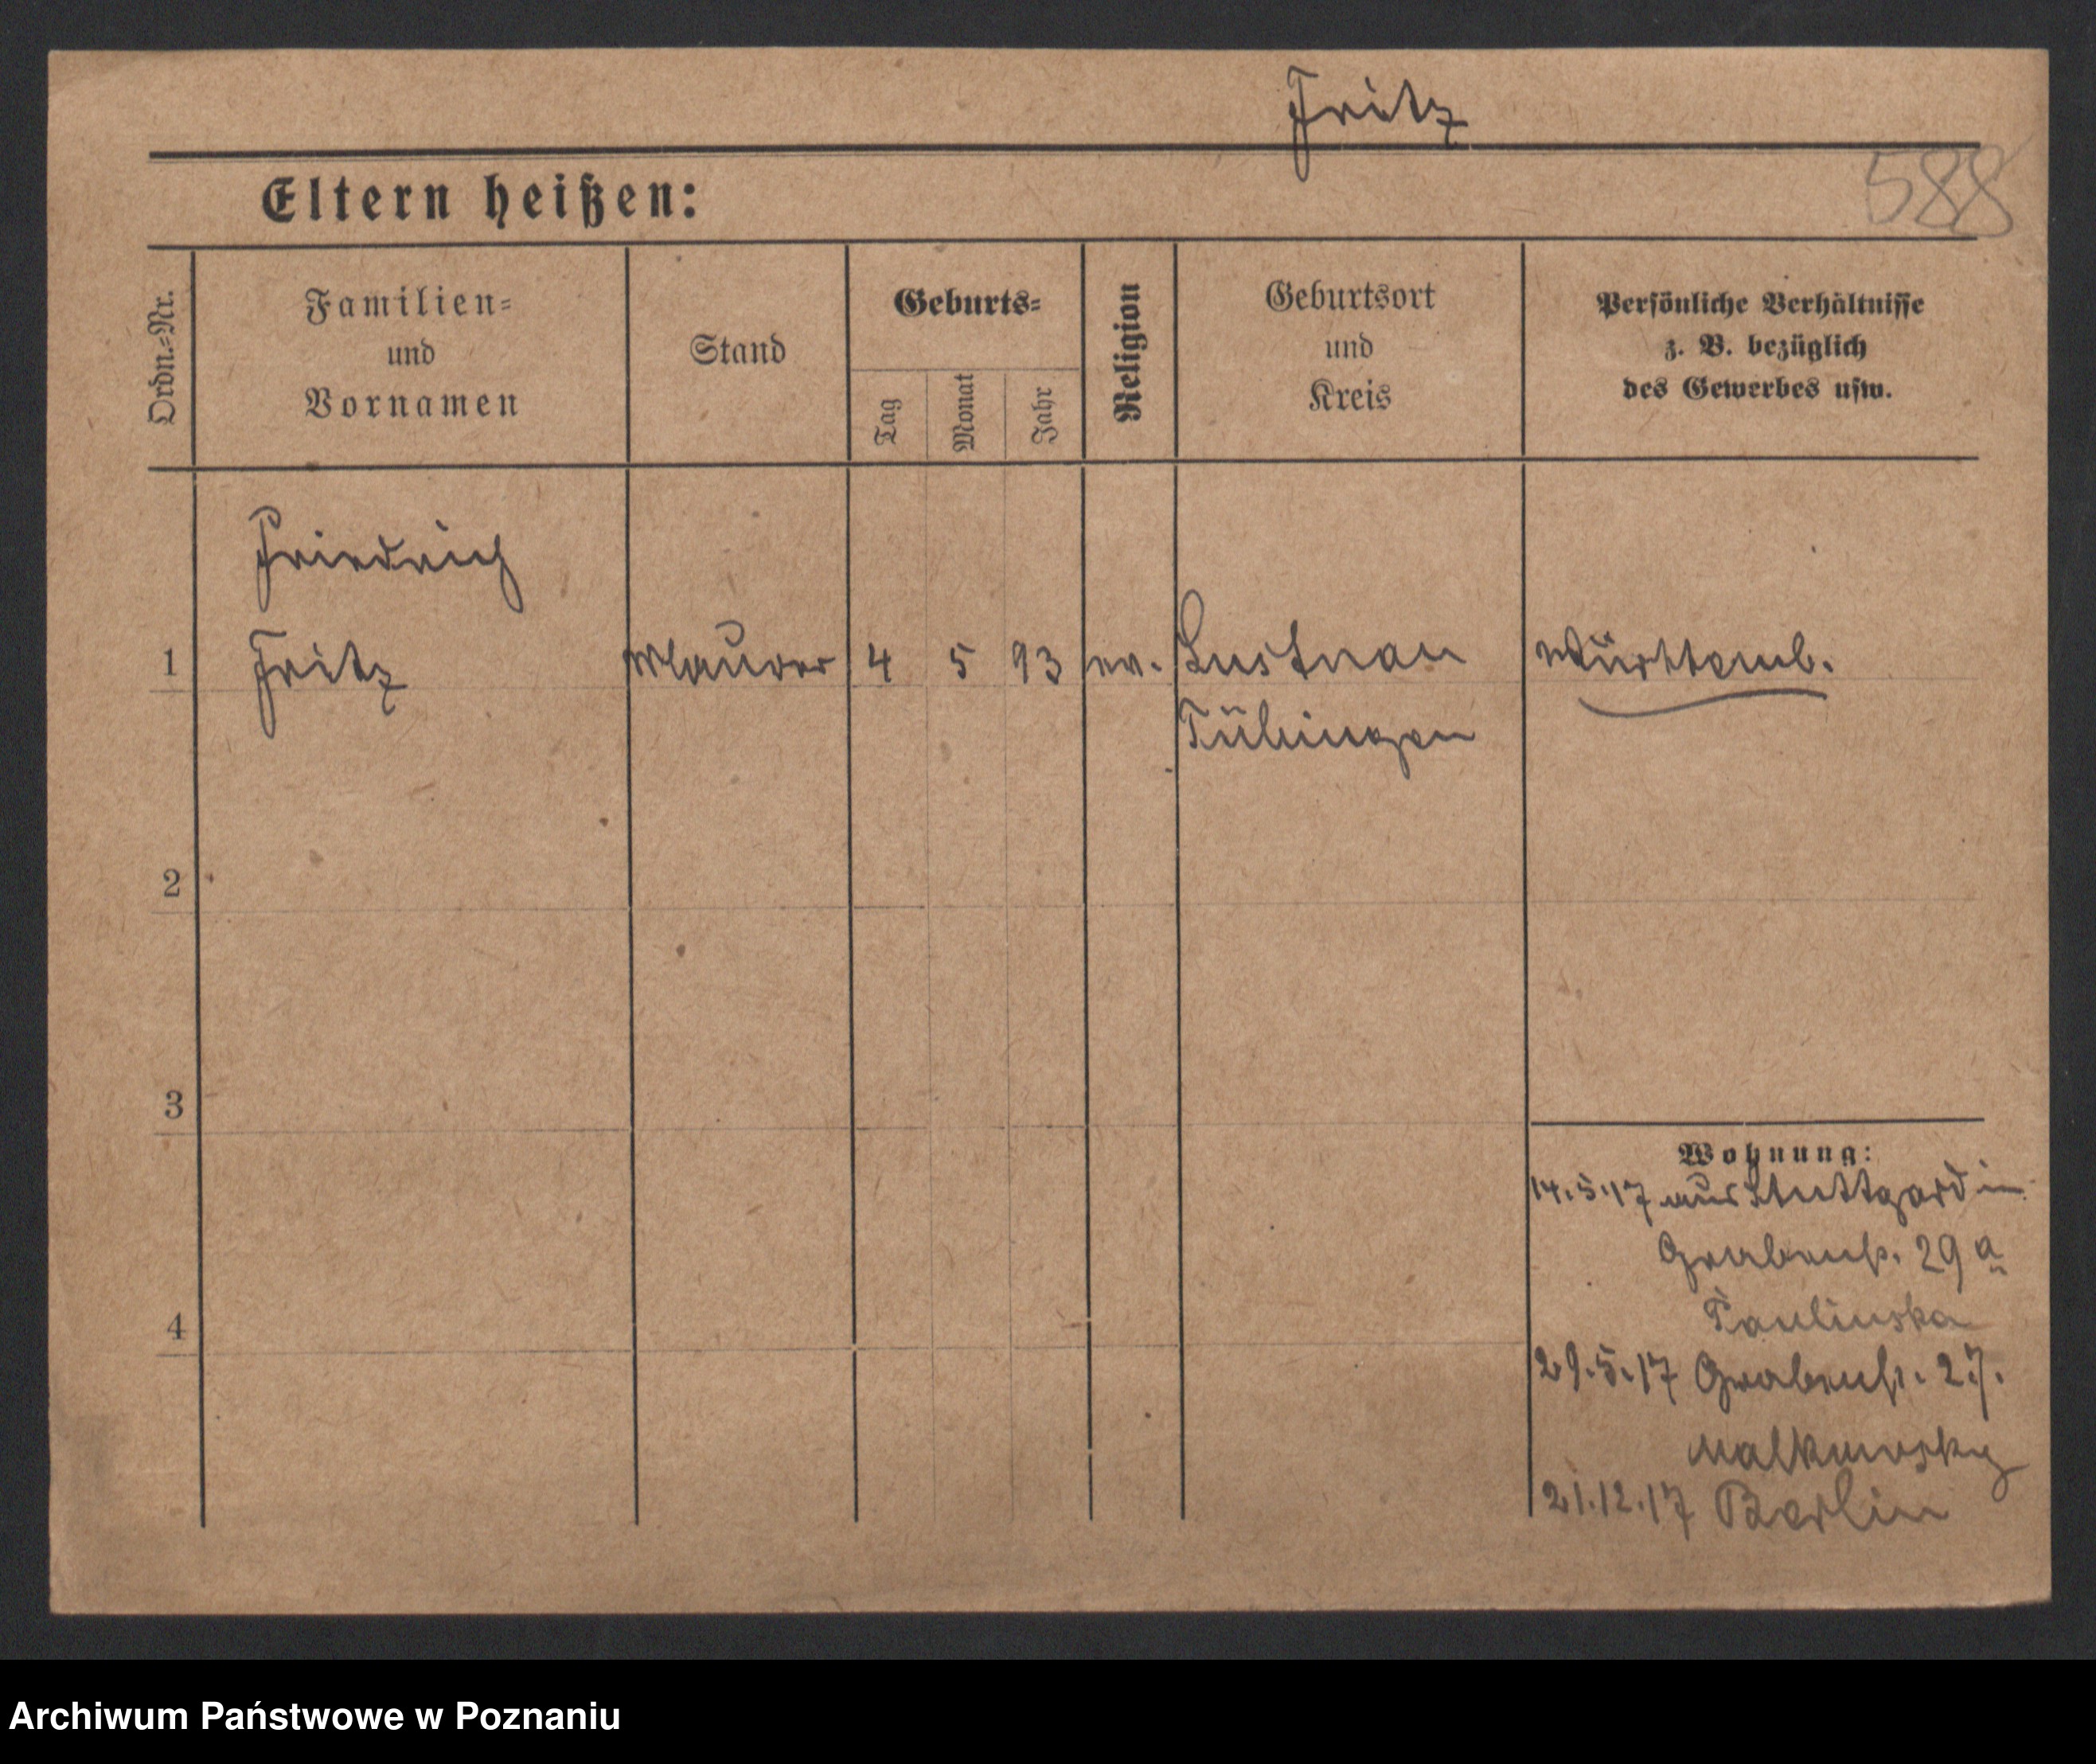 Fritz
588
Eltern heißen:
Ordn.-Nr.
Familien-
und
Vornamen
Stand
Geburts-
Tag
Monat
Jahr
Religion
Geburtsort
und
Kreis
Persönliche Verhältnisse
z. B. bezüglich
des Gewerbes usw.
Friedrich
1 Fritz Maurer 4 5 93 ev. Lustnau Württemb.
Tübingen
2
3
4
Wohnung:
14.5.17 aus Stuttgard in
Grabenstr. 29 a
Paulinska
29.5.17 Grabenstr. 27.
Malkowsky
21.12.17 Berlin
Archiwum Państwowe w Poznaniu